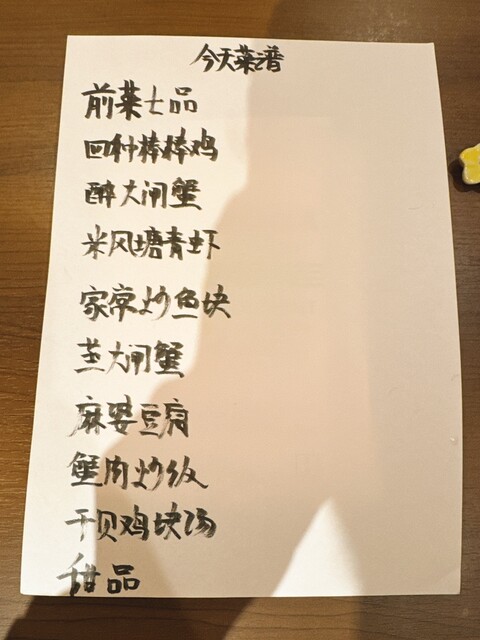 今天菜谱
前菜七品
四种棒棒鸡
醉大闸蟹
米风塘青虾
家常炒鱼块
蒸大闸蟹
麻婆豆腐
蟹肉炒饭
干贝鸡块汤
甜品